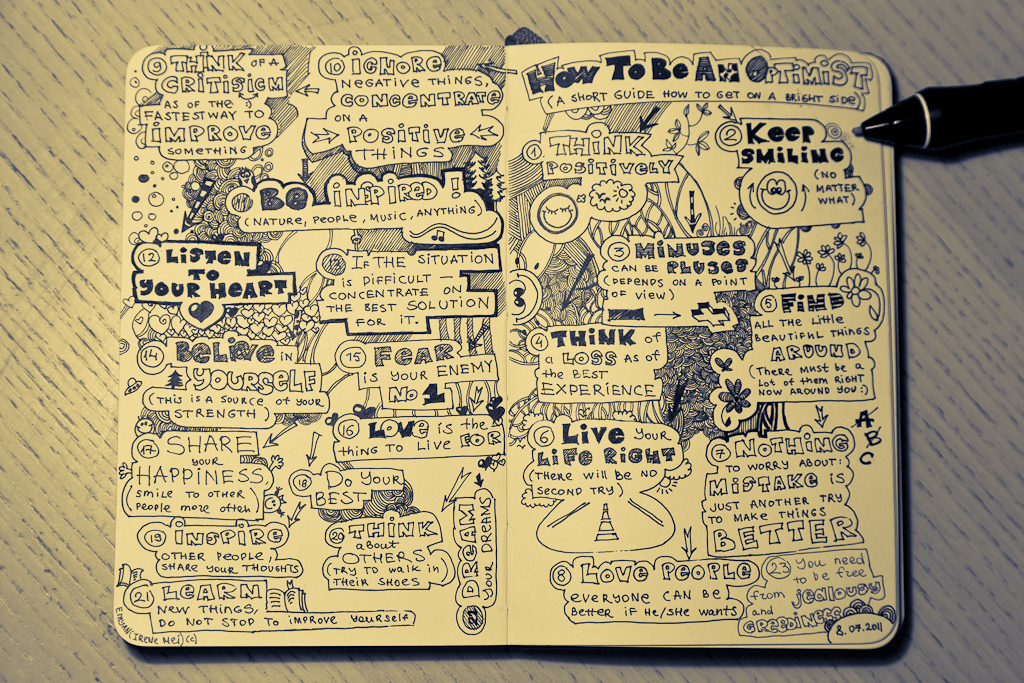 How To Be An Optimist
(A short guide how to get on a bright side)
1 Think
positively
2 Keep
smiling
(no
matter
what)
3 Minuses
can be pluses
(depends on a point
of view)
4 Think of
a loss as of
the best
experience
5 Find
all the little
beautiful things
around
(There must be a
lot of them right
now around you :)
6 Live your
life right
(there will be no
second try)
7 Nothing
to worry about:
mistake is
just another try
to make things
better
A
B
C
8 Love people
everyone can be
better if he/she wants
23 You need
to be free
from jealousy
and
greediness
8.07.2011
9 Think of a
critisism
as of the :)
fastest way to
improve
something
10 Ignore
negative things,
concentrate
on a
positive
things
Be inspired!
(nature, people, music, anything)
12 Listen
to
your heart
If the situation
is difficult –
concentrate on
the best solution
for it.
14 Belive in
yourself
(this is a source of your
strength)
15 Fear
is your enemy
No 1
16 Love is the
thing to live for
17 Share
your
happiness,
smile to other
people more often
18 Do your
best
19 Inspire
other people,
share your thoughts
20 Think
about
others
(try to walk in
their shoes
21 Learn
new things,
do not stop to improve yourself
22 Dream!
your dreams
(Irene Mei) (c)